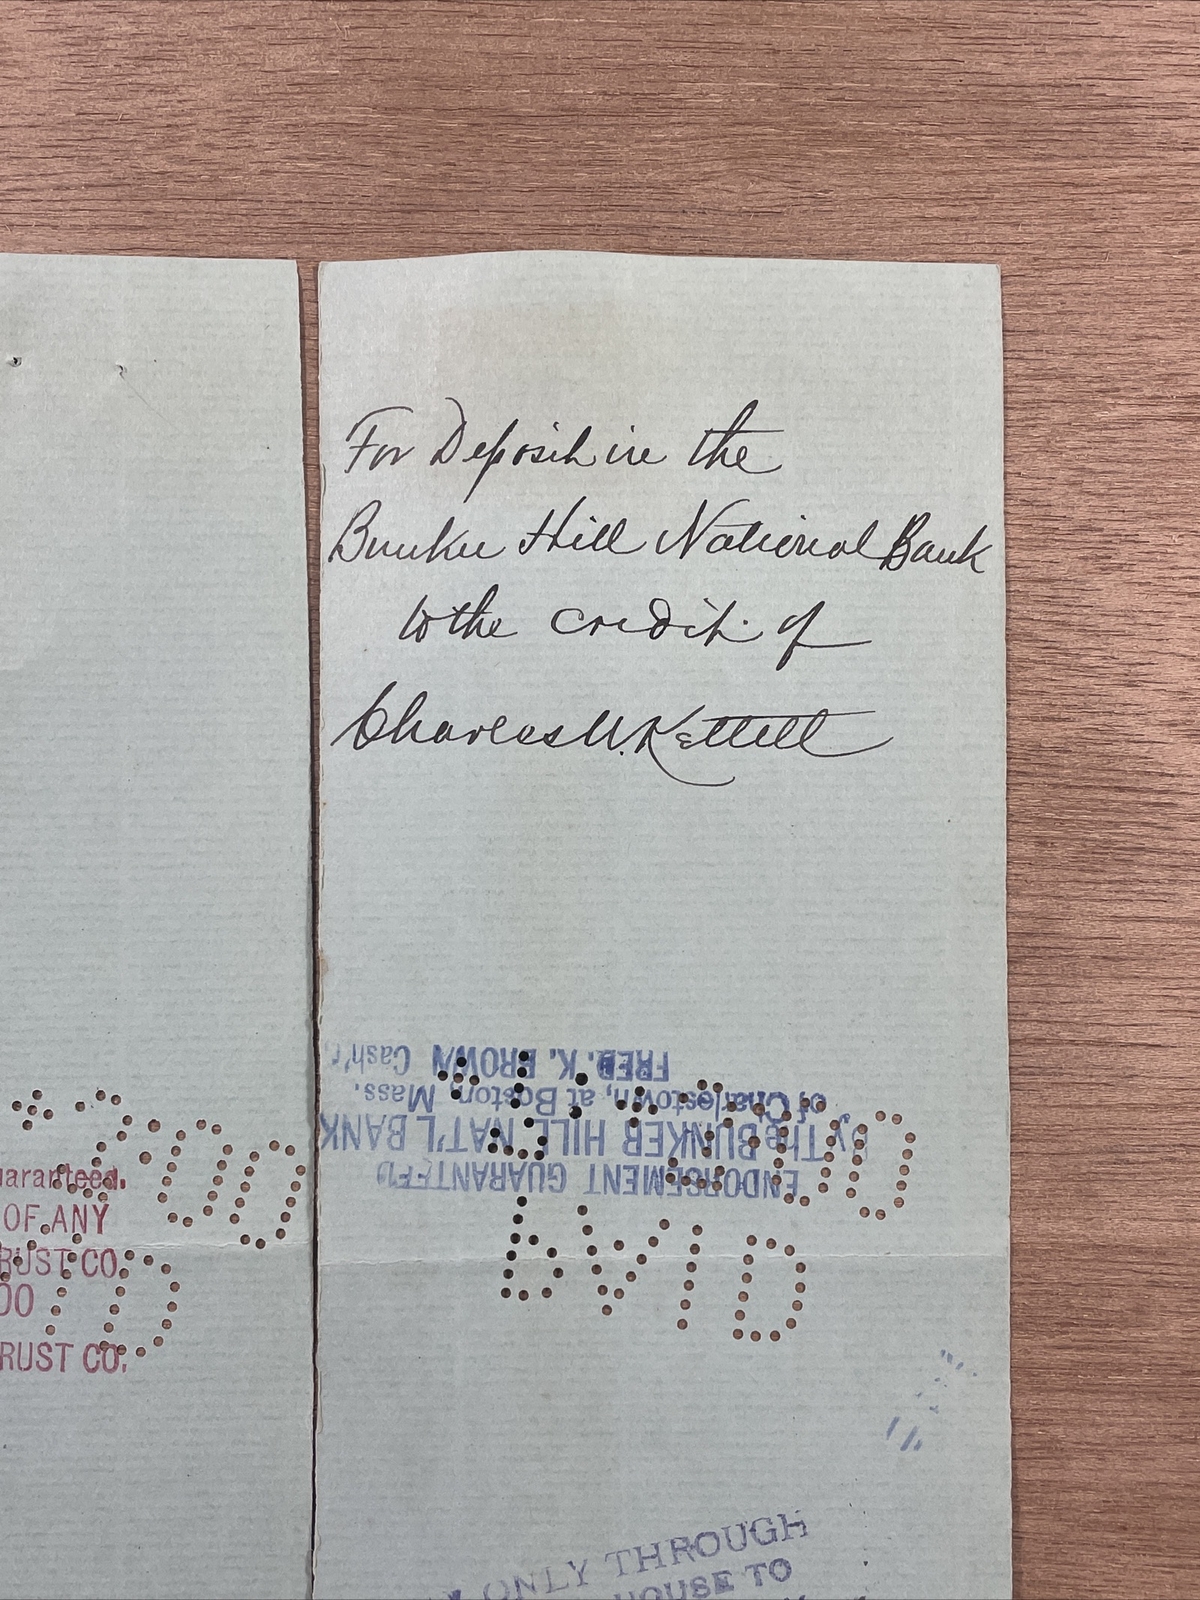 For Deposit in the
Bunker Hill National Bank
to the credit of
Charles U. Kettell
ENDORSEMENT GUARANTEED
By The BUNKER HILL NAT'L BANK
of Charlestown, at Boston, Mass.
FRED. K. BROWN Cash'r
PAID
ONLY THROUGH
HOUSE TO
uaranteed.
OF ANY
RUST CO.
00
RUST CO.